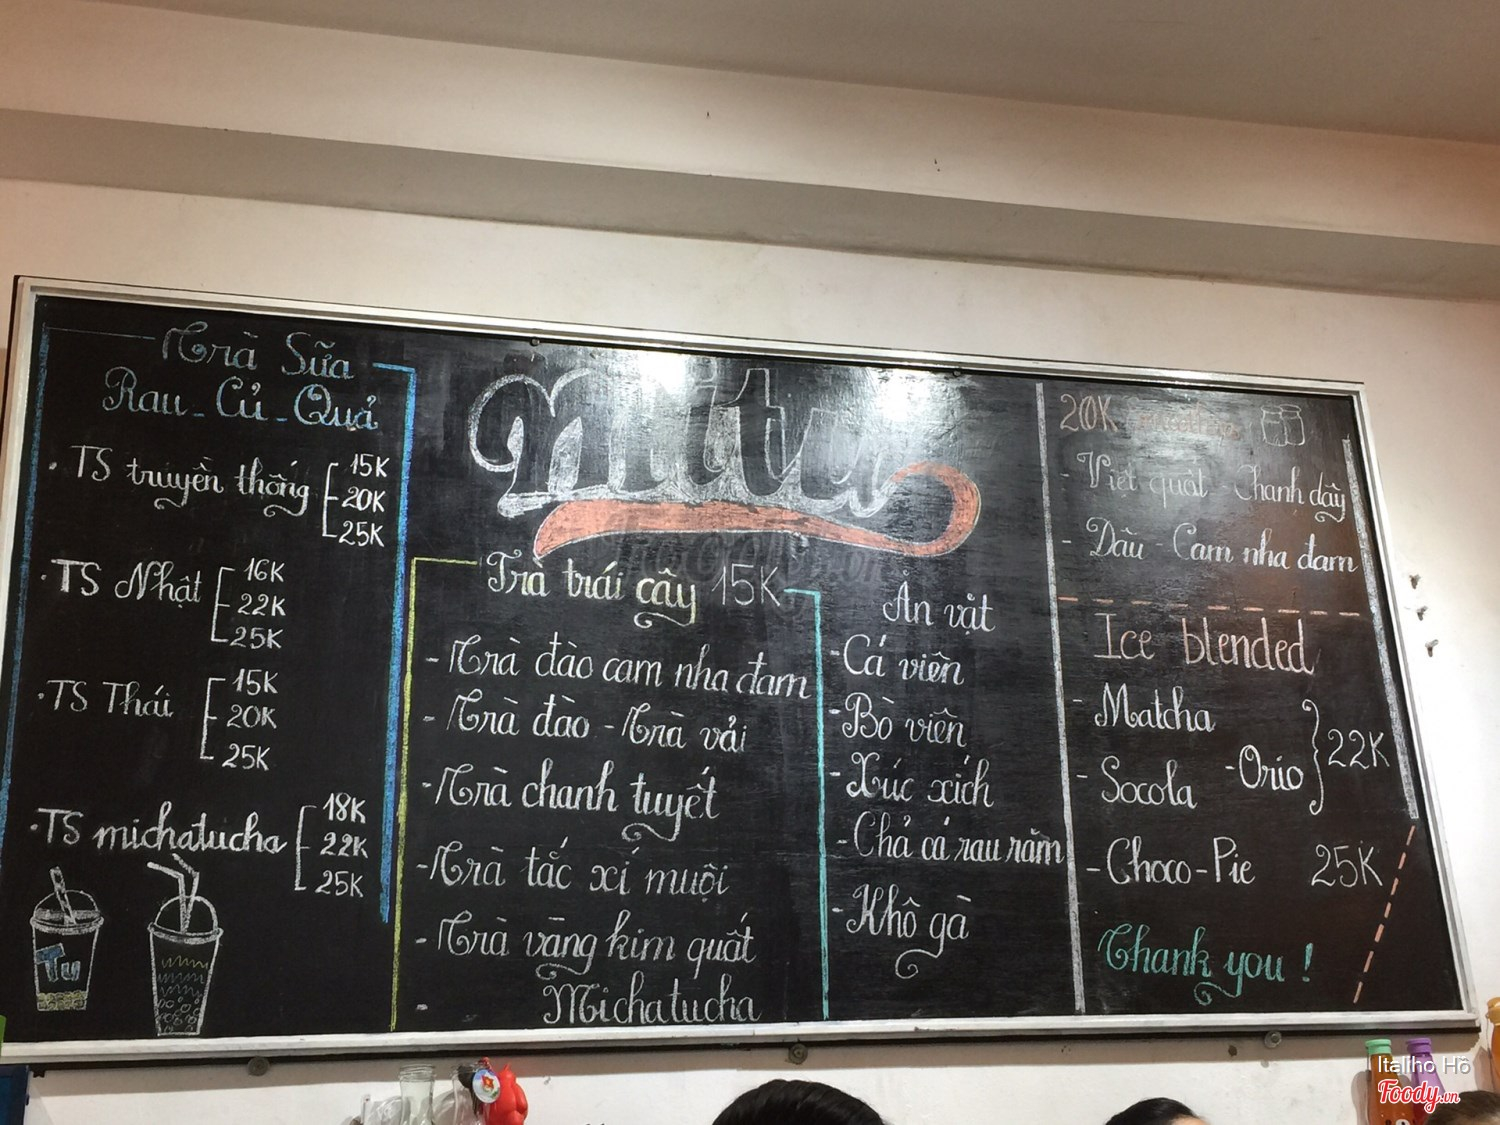 Trà Sữa
Rau - Củ - Quả
· TS truyền thống
15K
20K
25K
· TS Nhật
16K
22K
25K
· TS Thái
15K
20K
25K
· TS michatucha
18K
22K
25K
Tu
Mitu
Trà trái cây 15K
- Trà đào cam nha đam
- Trà đào - Trà vải
- Trà chanh tuyết
- Trà tắc xí muội
- Trà vãng kim quất
- Michatucha
Ăn vặt
- Cá viên
- Bò viên
- Xúc xích
- Chả cá rau răm
- Khô gà
20K
- Việt quất - Chanh dây
- Dâu - Cam nha đam
Ice blended
- Matcha
- Socola - Orio
22K
- Choco-Pie 25K
Thank you !
Italiho Hồ
Foody.vn